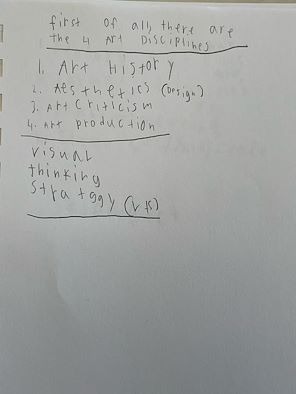 first of all, there are
the 4 Art Disciplines
1. Art History
2. Aesthetics (Design)
3. Art Criticism
4. Art production
visual
thinking
strataggy (vts)